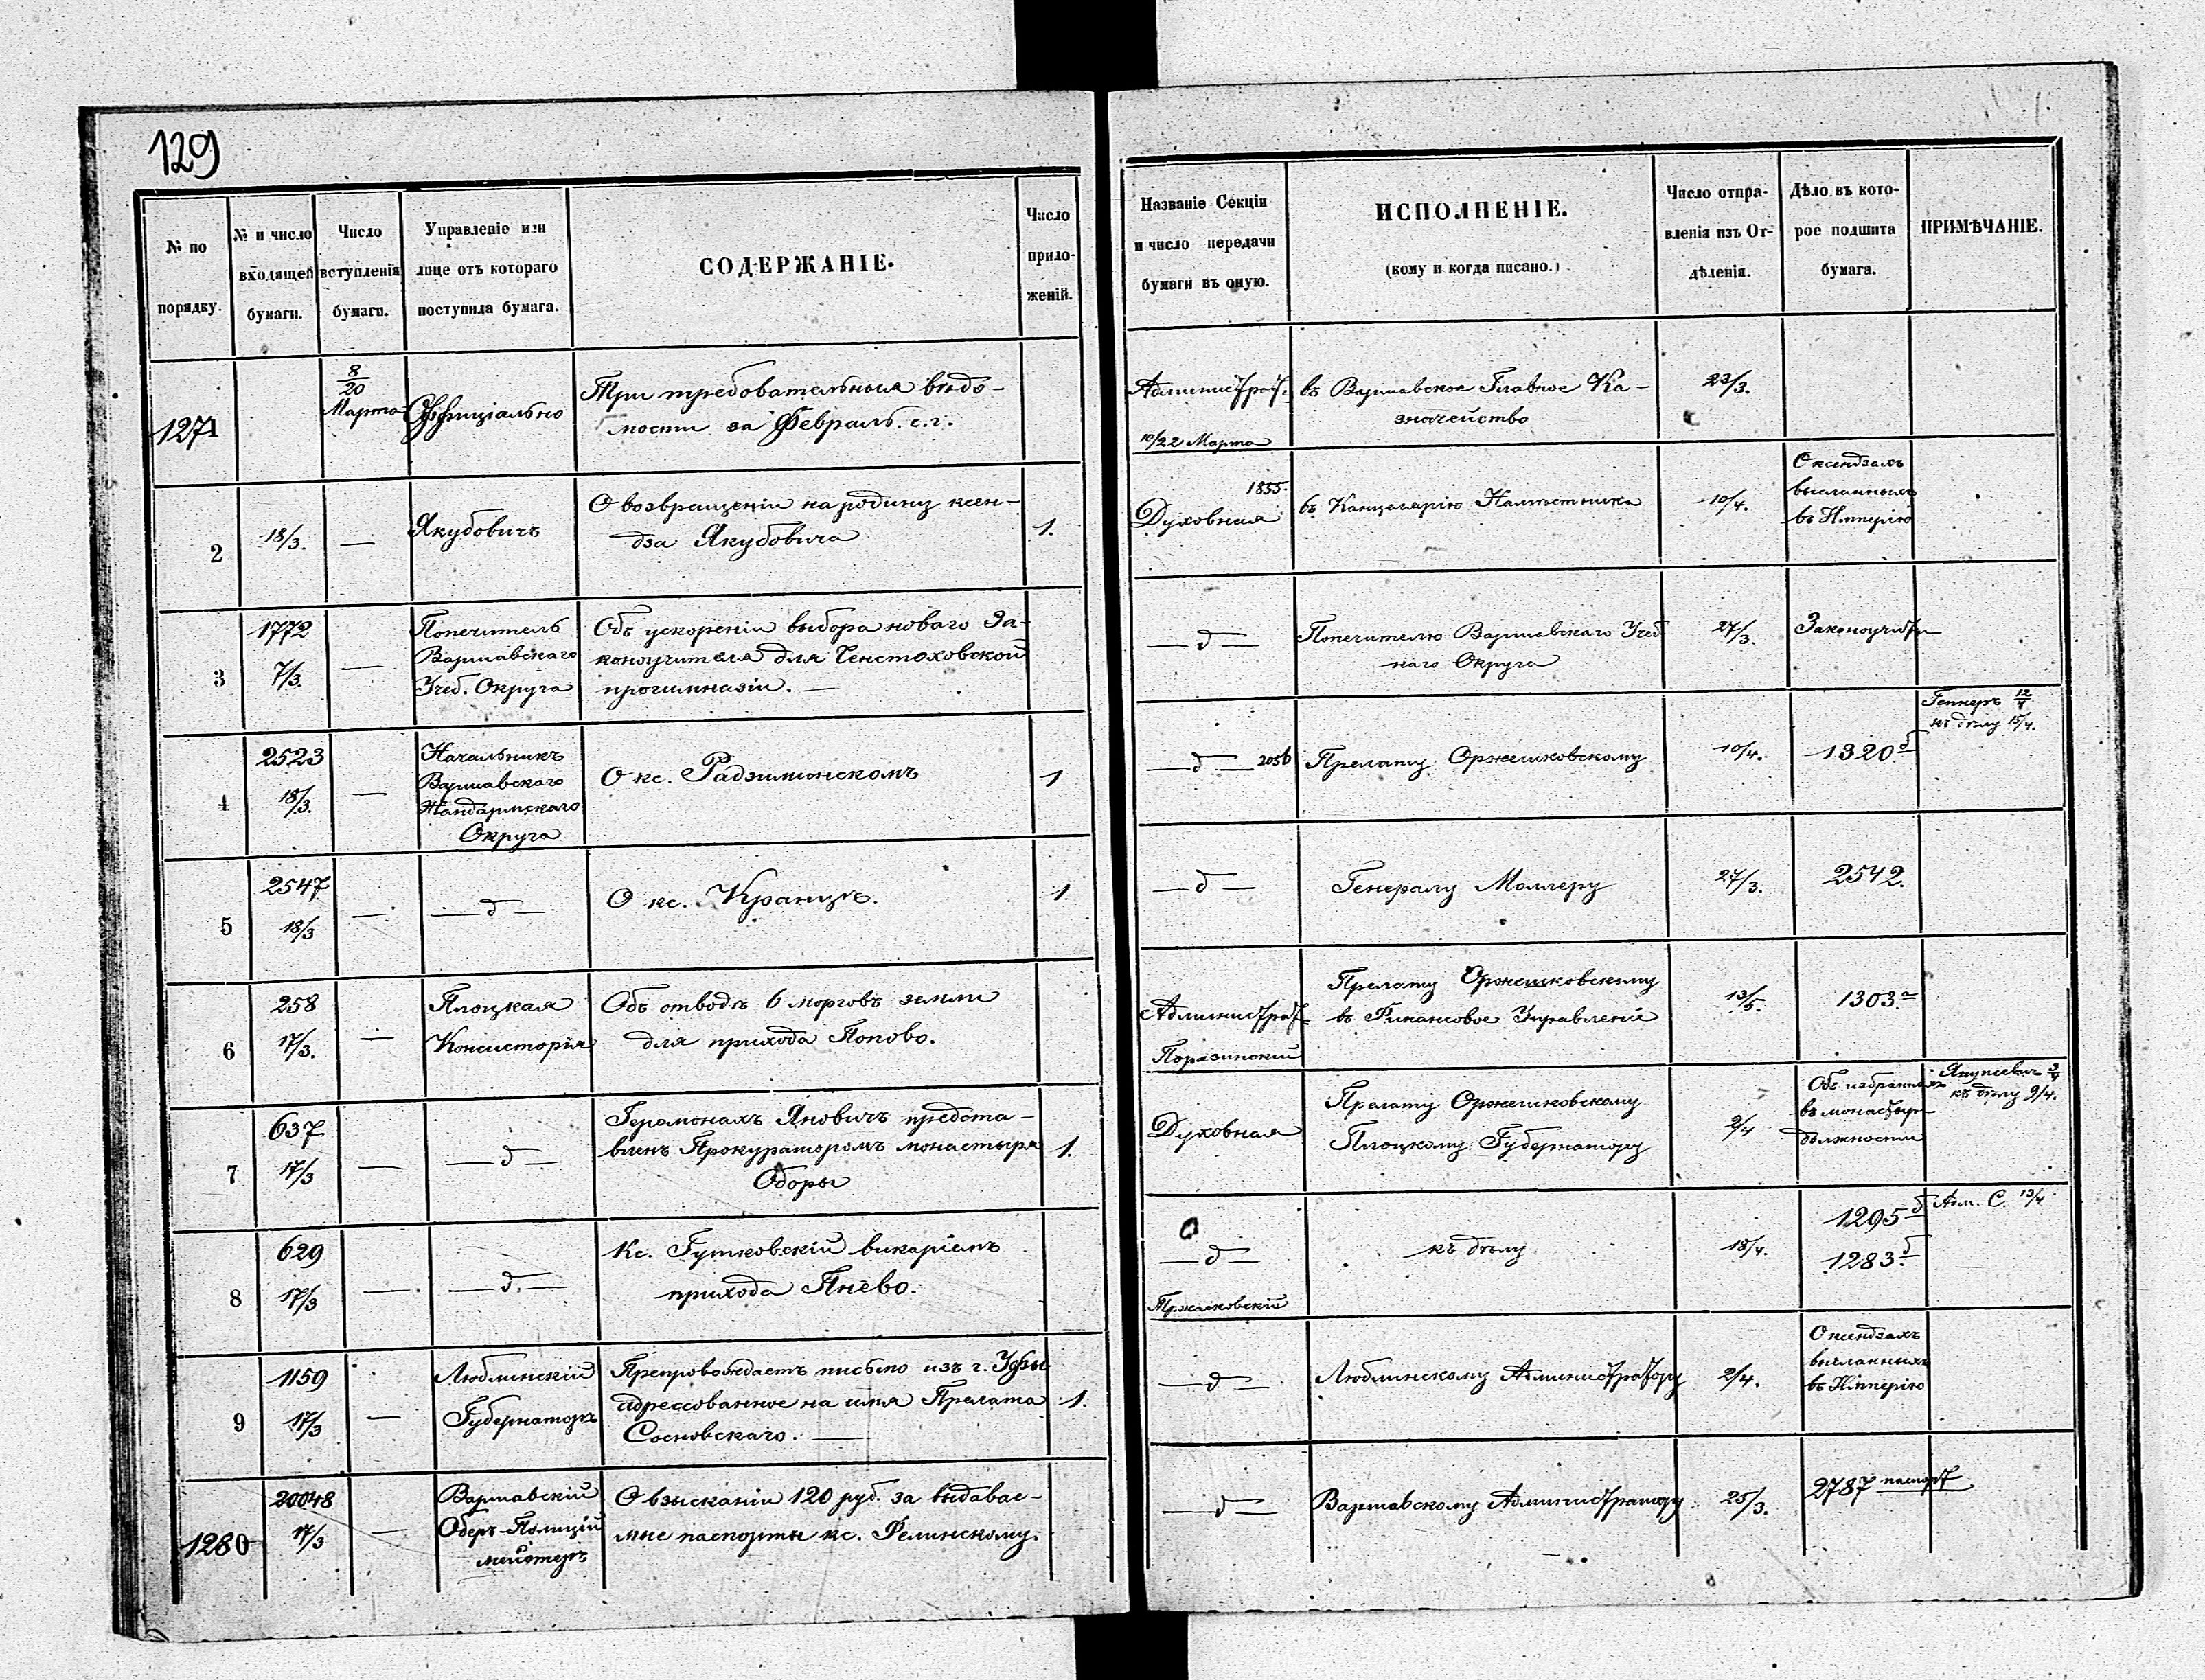 129
№ по
порядку.
№ и число
входящей
бумаги.
Число
вступленія
бумаги.
Управленіе или
лице отъ котораго
поступила бумага.
СОДЕРЖАНІЕ.
Число
прило-
женій.
Названіе Секціи
и число передачи
бумаги въ оную.
ИСПОЛНЕНІЕ.
(кому и когда писано.)
Число отпра-
вленія изъ От-
дѣленія.
Дѣло въ кото-
рое подшита
бумага.
ПРИМѢЧАНІЕ.
1271
8/20
Марта
Оффиціально
Три требовательныя вѣдо-
мости за Февраль с. г.
Администрат.
10/22 Марта
въ Варшавское Главное Ка-
значейство
23/3.
2
18/3.
—
Якубовичъ
О возвращеніи на родину ксен-
дза Якубовича
1.
1855.
Духовная
въ Канцелярію Намѣстника
10/4.
О ксендзахъ
высланныхъ
въ Имперію
3
1772
7/3.
—
Попечитель
Варшавскаго
Учеб. Округа
Объ ускореніи выбора новаго За-
коноучителя для Ченстоховской
прогимназіи. —
— д —
Попечителю Варшавскаго Учеб
наго Округа
27/3.
4
2523
18/3.
—
Начальникъ
Варшавскаго
Жандармскаго
Округа
О кс. Радзиминскомъ
1
— д — 2056
Прелату Оржешковскому
10/4.
1320 б
12/4
къ дѣлу 15/4.
5
2547
18/3
—
— д —
О кс. Кранцѣ.
1.
— д —
Генералу Моллеру
27/3.
2542.
6
258
17/3.
—
Плоцкая
Консисторія
Объ отводѣ 6 морговъ земли
для прихода Попово.
Администрат
Поразинскій
Прелату Оржешковскому
въ Финансовое Управленіе
13/5.
1303 а
7
637
17/3
—
— д —
Іеромонахъ Яновичъ предста-
вленъ Прокураторомъ монастыря
Оборы
1.
Духовная
Прелату Оржешковскому
Плоцкому Губернатору
2/4
Объ избранныхъ
въ монастыр
должности
3/4
къ дѣлу 9/4.
8
629
17/3
—
— д. —
Кс. Гутковскій викаріемъ
прихода Пнево.
— д —
къ дѣлу
18/4.
1295 б
1283 б
Адм. С. 13/4
9
1159
17/3
—
Люблинскій
Губернаторъ
Препровождаетъ письмо изъ г. Уфы
адрессованное на имя Прелата
Сосновскаго. —
1.
— д —
Люблинскому Администратору
2/4.
О ксендзахъ
высланныхъ
въ Имперію
1280
20048
17/3
—
Варшавскій
Оберъ-Полицій
мейстеръ
О взысканіи 120 руб. за выдавае-
мые паспорты кс. Фелинскому.
— д —
Варшавскому Администратору
25/3.
2787 паспорт